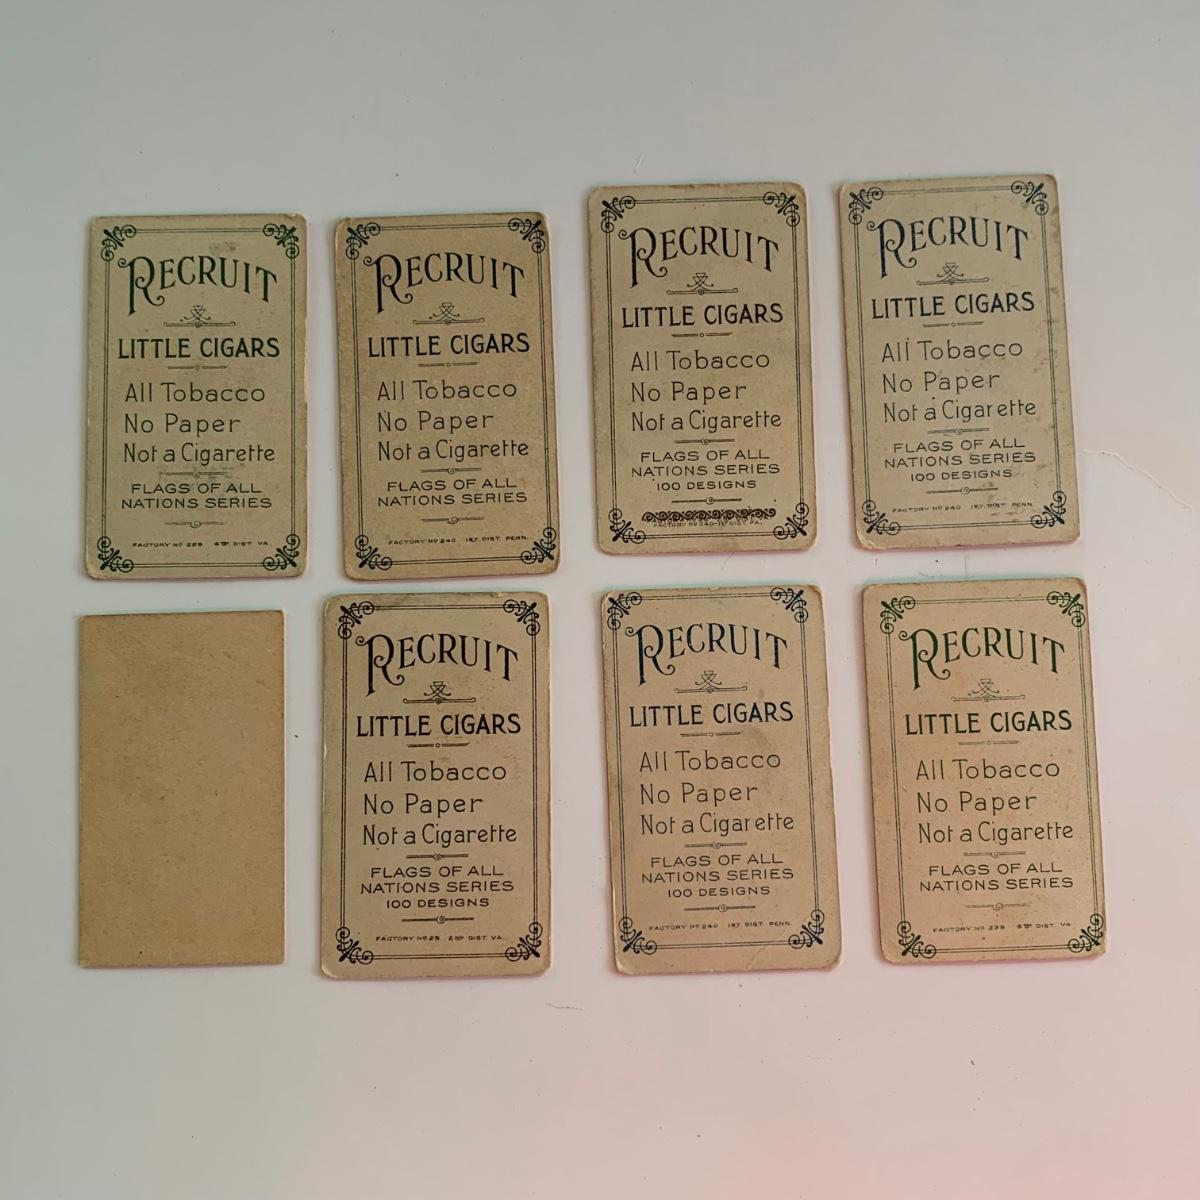 RECRUIT
LITTLE CIGARS
All Tobacco
No Paper
Not a Cigarette
FLAGS OF ALL
NATIONS SERIES
FACTORY Nº 229 6TH DIST. VA.
RECRUIT
LITTLE CIGARS
All Tobacco
No Paper
Not a Cigarette
FLAGS OF ALL
NATIONS SERIES
FACTORY Nº 240 1ST. DIST. PENN.
RECRUIT
LITTLE CIGARS
All Tobacco
No Paper
Not a Cigarette
FLAGS OF ALL
NATIONS SERIES
100 DESIGNS
FACTORY Nº 240-1ST DIST. PA.
RECRUIT
LITTLE CIGARS
All Tobacco
No Paper
Not a Cigarette
FLAGS OF ALL
NATIONS SERIES
100 DESIGNS
FACTORY Nº 240 1ST. DIST. PENN.
RECRUIT
LITTLE CIGARS
All Tobacco
No Paper
Not a Cigarette
FLAGS OF ALL
NATIONS SERIES
100 DESIGNS
FACTORY Nº 25 2ND DIST. VA.
RECRUIT
LITTLE CIGARS
All Tobacco
No Paper
Not a Cigarette
FLAGS OF ALL
NATIONS SERIES
100 DESIGNS
FACTORY Nº 240 1ST. DIST. PENN.
RECRUIT
LITTLE CIGARS
All Tobacco
No Paper
Not a Cigarette
FLAGS OF ALL
NATIONS SERIES
FACTORY Nº 229 6TH DIST. VA.